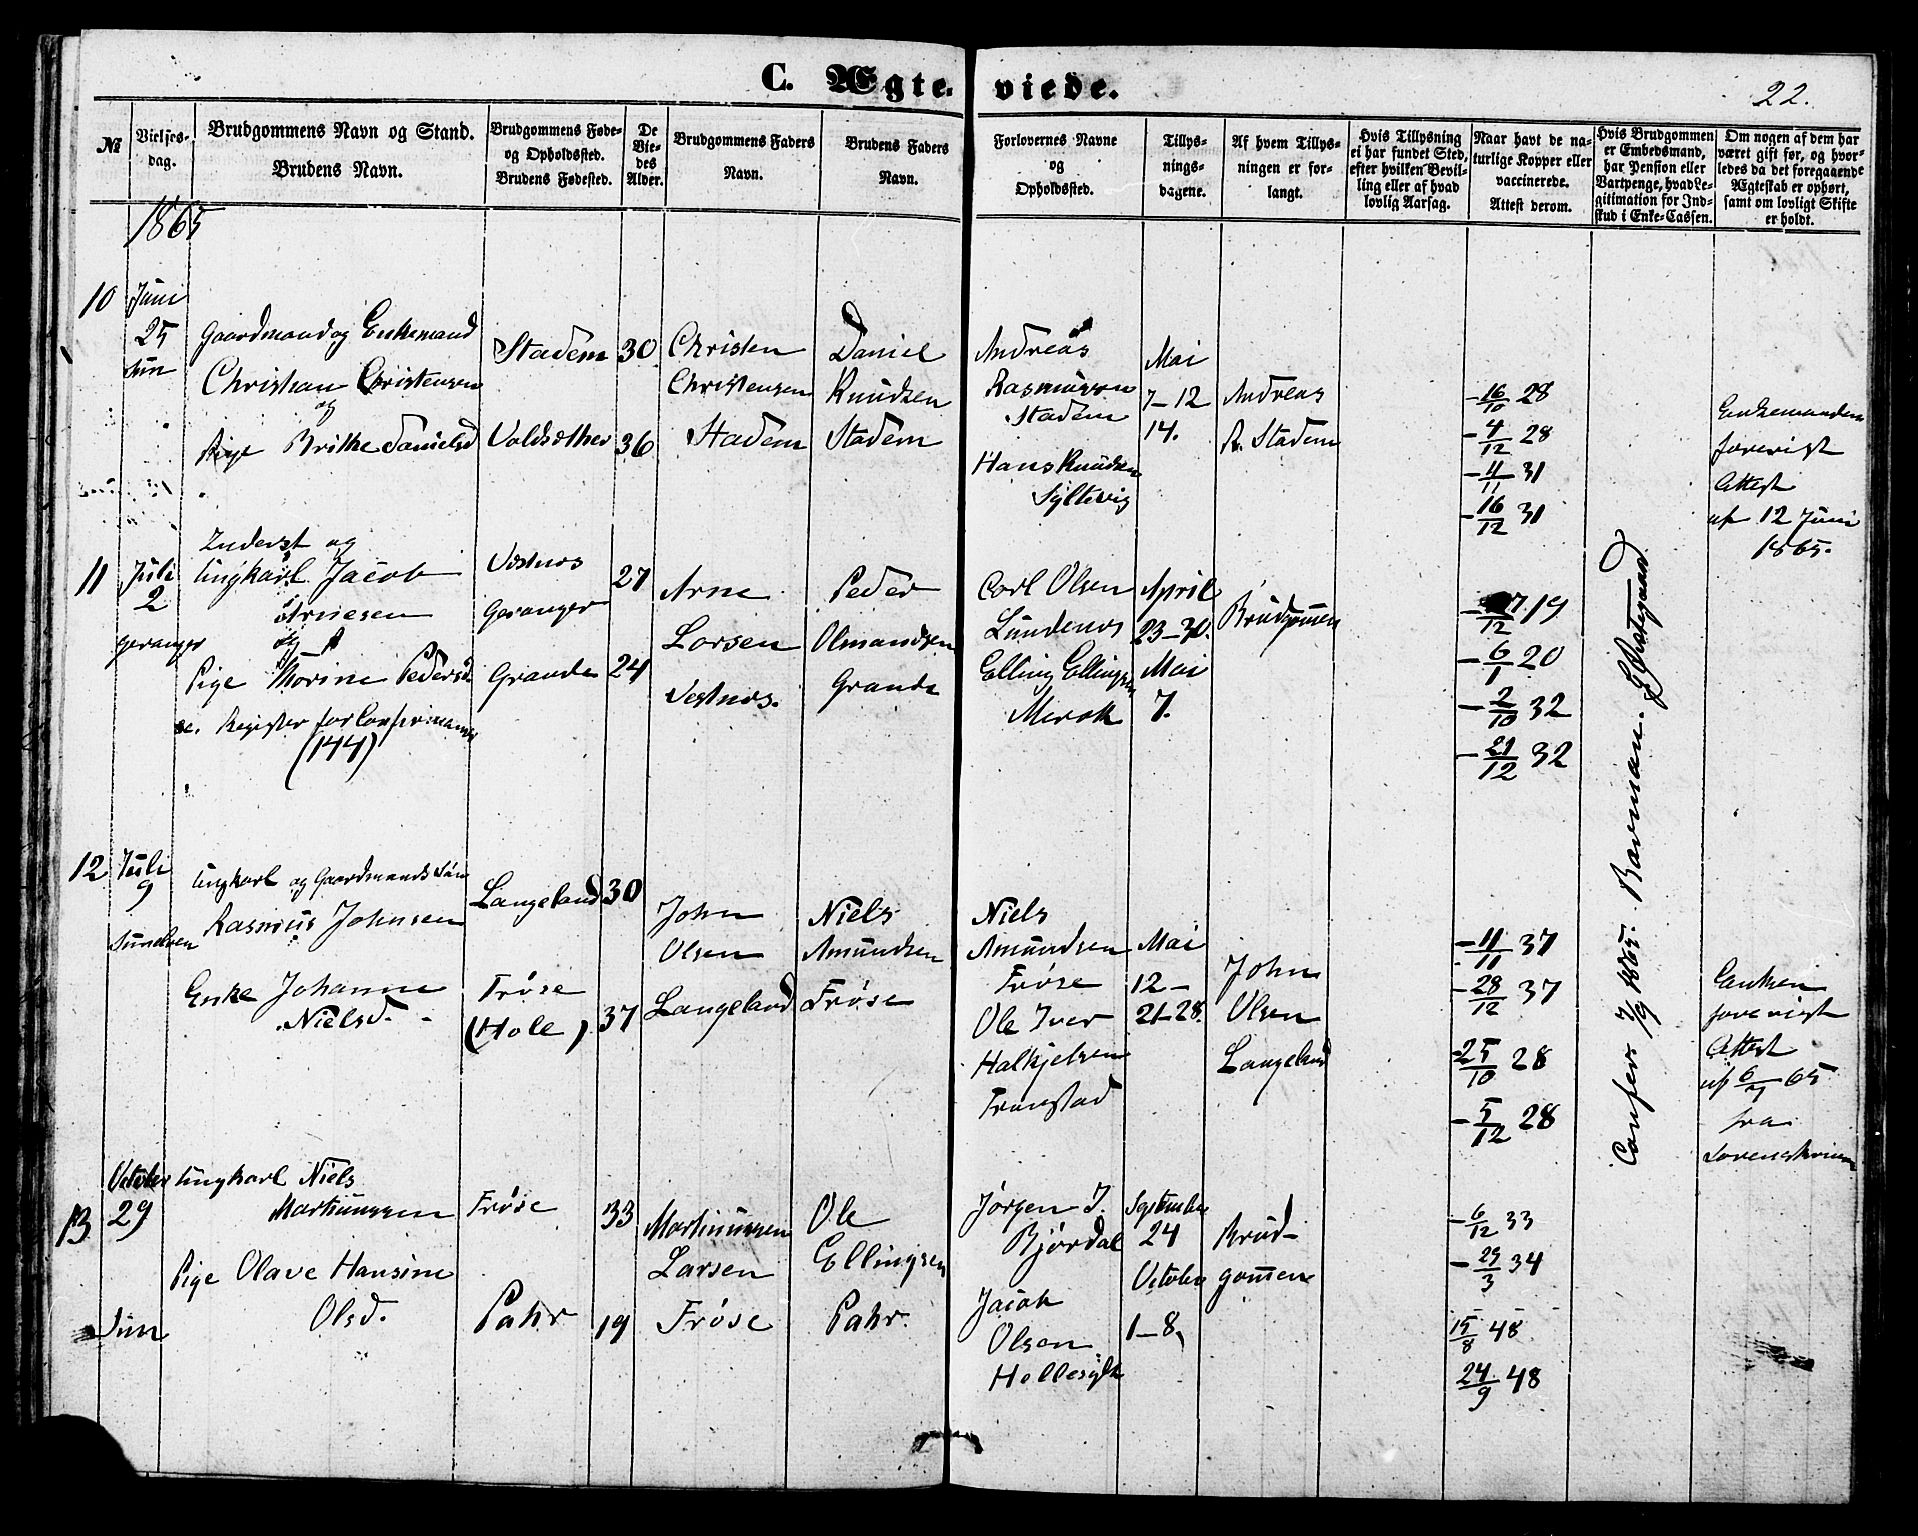 C. Ægteviede.
22.
№
Vielses-
dag.
Brudgommens Navn og Stand.
Brudens Navn.
Brudgommens Føde-
og Opholdssted.
Brudens Fødested.
De
Vie-
des
Alder.
Brudgommens Faders
Navn.
Brudens Faders
Navn.
Forlovernes Navne
og
Opholdssted.
Tillys-
nings-
dagene.
Af hvem Tillys-
ningen er for-
langt.
Hvis Tillysning
ei har fundet Sted,
efter hvilken Bevil-
ling eller af hvad
lovlig Aarsag.
Naar havt de na-
turlige Kopper eller
vaccinerede.
Attest derom.
Hvis Brudgommen
er Embedsmand,
har Pension eller
Vartpenge, hvad Le-
gitimation for Ind-
skud i Enke-Cassen.
Om nogen af dem har
været gift før, og hvor-
ledes da det foregaaende
Ægteskab er ophørt,
samt om lovligt Skifte
er holdt.
1865
10
Juni
25
Sun
Gaardmand og Enkemand
Christian Christensen
og
Pige Brithe Danielsd
Stadem
Voldsæther
30
36
Christen
Christensen
Stadem
Daniel
Knudsen
Stadem
Andreas
Rasmussen
Stadem
Hans Knudsen
Syltevig
Mai
7-12
14.
Andreas
R. Stadem
16/10 28
4/12 28
4/11 31
16/12 31
Enkemanden
forevist
Attest
af 12 Juni
1865.
11
Juli
2
Geranger
Inderst og
Ungkarl Jacob
Arnesen
og
Pige Thorine Pedersd
se. Register for Confirmanter
(144)
Vestnes
Geranger
Grande
27
24
Arne
Larsen
Vestnes.
Peder
Olmandsen
Grande
Carl Olsen
Lundenes
Elling Ellingsen
Merok
April
23-30.
Mai
7.
Brudgommen
7/12 19
6/1 20
2/10 32
21/12 32
12
Juli
9
Sunelven
Ungkarl og Gaardmands Søn
Rasmus Johnsen
Enke Johanne
Nielsd.
Langeland
Frøse
(Hole)
30
37
John
Olsen
Langeland
Niels
Amundsen
Frøse
Niels
Amundsen
Frøse
Ole Iver
Halkjelsen
Tronstad
Mai
12-
21-28.
John
Olsen
Langeland
11/11 37
28/12 37
25/10 28
5/12 28
Enken
forevist
Attest
af 6/7 65
fra
Sorenskriveren
13
October
29
Sun
Ungkarl Niels
Martinussen
Pige Olave Hansine
Olsd.
Frøse
Pahr
33
19
Martinussen
Larsen
Frøse
Ole
Ellingsen
Pahr.
Jørgen J.
Bjørdal
Jacob
Olsen
Hellesylt
September
24
October
1-8,
Brud-
gommen
6/12 33
29/3 34
15/8 48
24/9 48
Confer 7/9 1865.